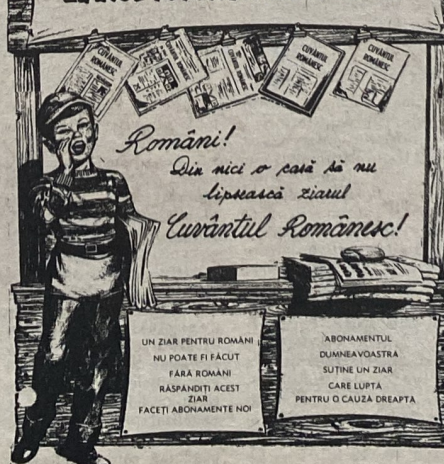 CUVÂNTUL
ROMÂNESC
CUVÂNTUL
ROMÂNESC
CUVÂNTUL
ROMÂNESC
Români!
Din nici o casă să nu
lipsească ziarul
Cuvântul Românesc!
UN ZIAR PENTRU ROMÂNI
NU POATE FI FĂCUT
FĂRĂ ROMÂNI
RĂSPÂNDIȚI ACEST
ZIAR
FACEȚI ABONAMENTE NOI
ABONAMENTUL
DUMNEAVOASTRĂ
SUȚINE UN ZIAR
CARE LUPTĂ
PENTRU O CAUZĂ DREAPTĂ